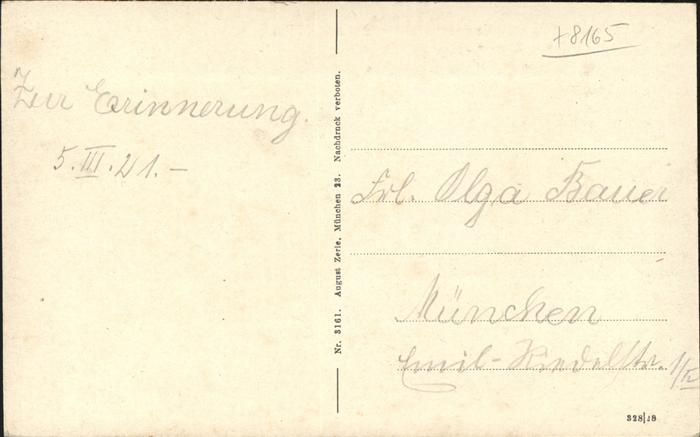 Zur Erinnerung.
5. III. 21. –
Nr. 3161. August Zerle, München 23. Nachdruck verboten.
+8165
Frl. Olga Bauer
München
Emil-Riedelstr. 1/II
328/18